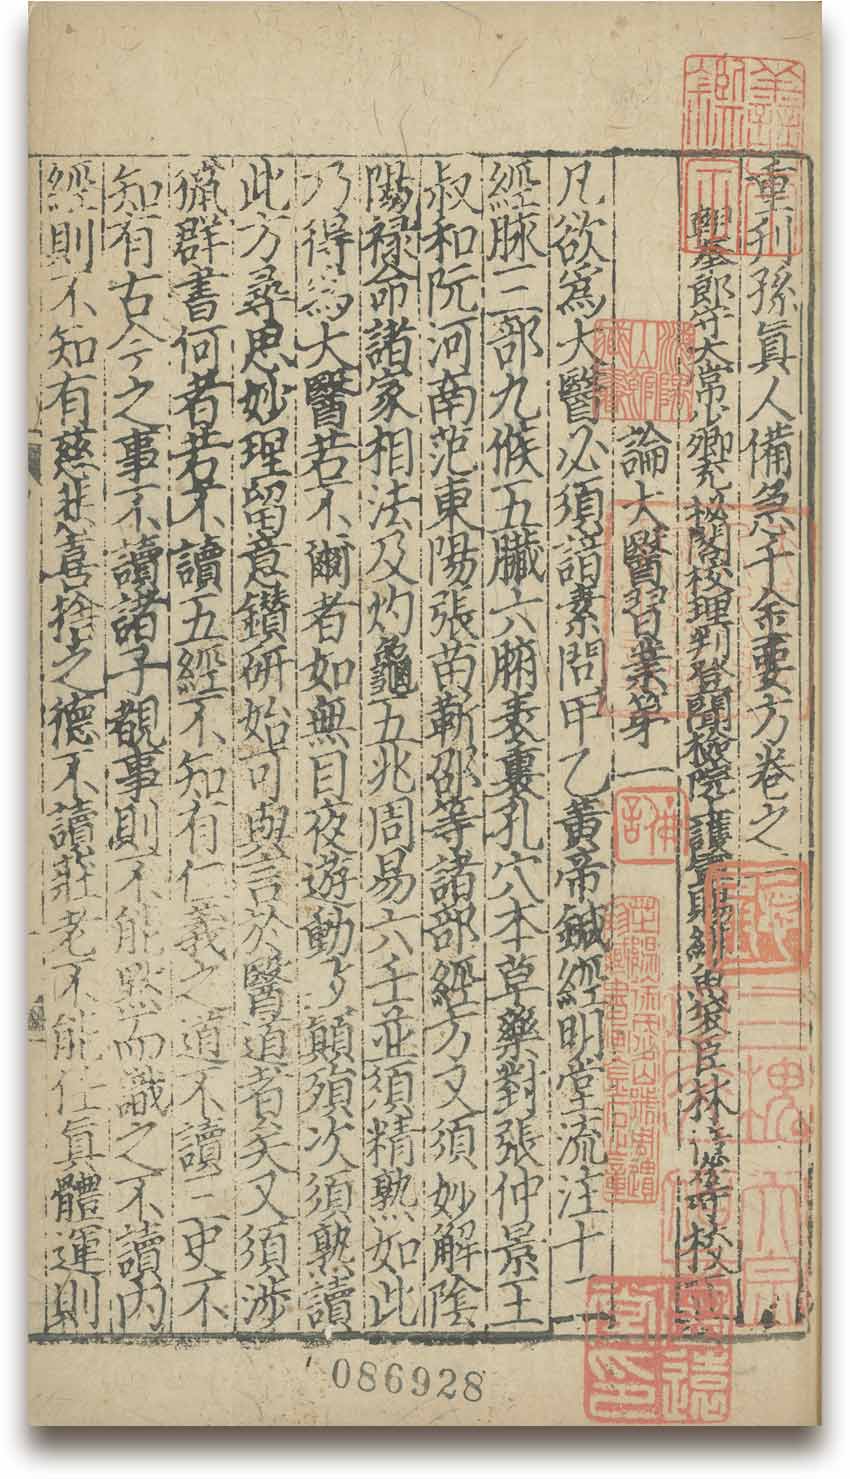 重刊孫真人備急千金要方卷之一
朝奉郎守太常少卿充祕閣校理判登聞檢院上護軍賜緋魚袋臣林億等校正
論大醫習業第一
凡欲為大醫必須諳素問甲乙黃帝鍼經明堂流注十二
經脉三部九候五臟六腑表裏孔穴本草藥對張仲景王
叔和阮河南范東陽張苗靳邵等諸部經方又須妙解陰
陽祿命諸家相法及灼龜五兆周易六壬並須精熟如此
乃得為大醫若不爾者如無目夜遊動多顛殞次須熟讀
此方尋思妙理留意鑽研始可與言於醫道者矣又須涉
獵群書何者若不讀五經不知有仁義之道不讀三史不
知有古今之事不讀諸子覩事則不能默而識之不讀內
經則不知有慈悲喜捨之德不讀莊老不能任真體運則
086928